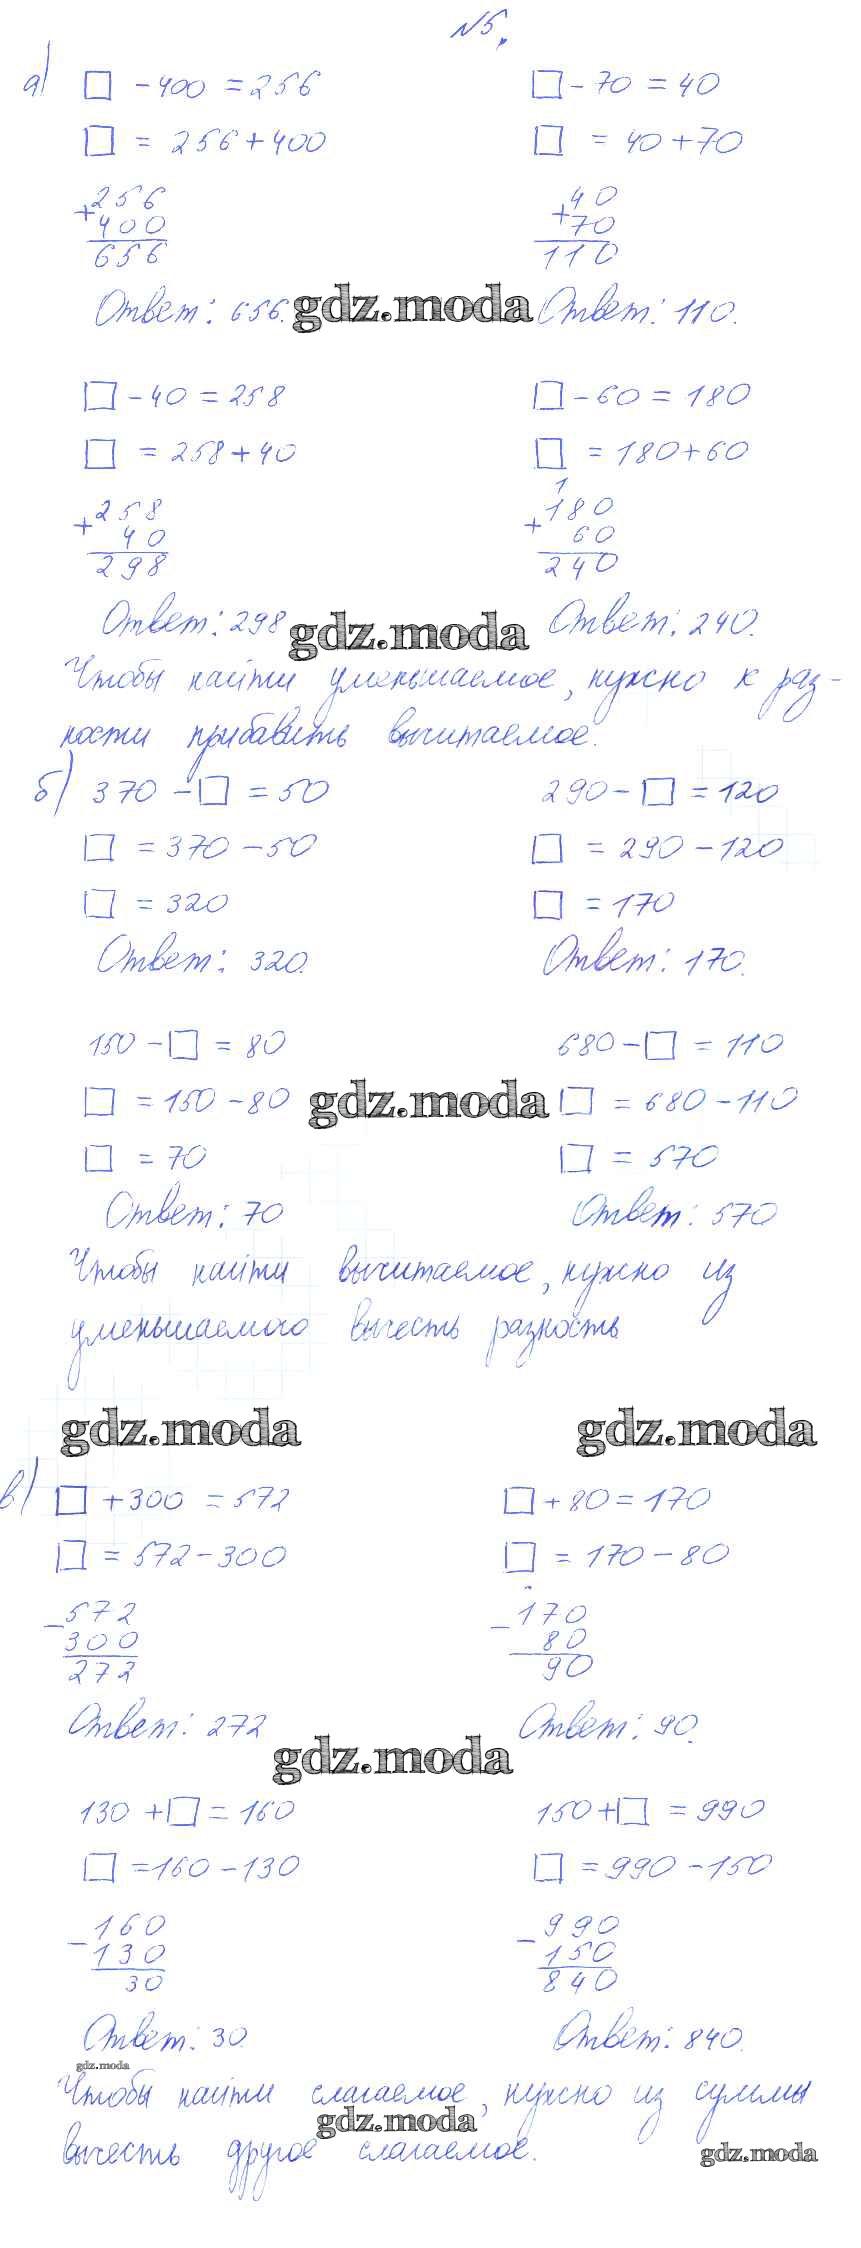 №5.
а) □ - 400 = 256
□ = 256 + 400
+ 256
400
656
Ответ: 656.
□ - 70 = 40
□ = 40 + 70
+ 40
70
110
Ответ: 110.
gdz.moda
□ - 40 = 258
□ = 258 + 40
+ 258
40
298
Ответ: 298
□ - 60 = 180
□ = 180 + 60
1
+ 180
60
240
Ответ: 240.
gdz.moda
Чтобы найти уменьшаемое, нужно к раз-
ности прибавить вычитаемое.
б) 370 - □ = 50
□ = 370 - 50
□ = 320
Ответ: 320.
290 - □ = 120
□ = 290 - 120
□ = 170
Ответ: 170.
150 - □ = 80
□ = 150 - 80
□ = 70
Ответ: 70
gdz.moda
680 - □ = 110
□ = 680 - 110
□ = 570
Ответ: 570
Чтобы найти вычитаемое, нужно из
уменьшаемого вычесть разность
gdz.moda
gdz.moda
в) □ + 300 = 572
□ = 572 - 300
- 572
300
272
Ответ: 272
□ + 80 = 170
□ = 170 - 80
- 170
80
90
Ответ: 90.
gdz.moda
130 + □ = 160
□ = 160 - 130
- 160
130
30
Ответ: 30.
150 + □ = 990
□ = 990 - 150
- 990
150
840
Ответ: 840.
gdz.moda
Чтобы найти слагаемое, нужно из суммы
вычесть другое слагаемое.
gdz.moda
gdz.moda